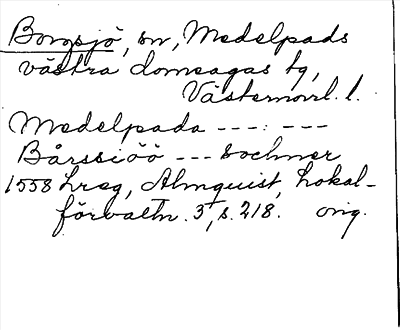 Borgsjö, sn, Medelpads
västra domsagas tg,
Västernorrl. l.
Medelpada ---:---
Bårssiöö --- sochner
1558 hreg, Almquist, Lokal-
förvaltn. 3, s. 218. orig.